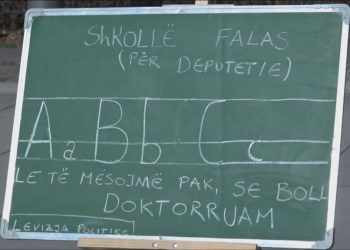 SHKOLLË FALAS
(PËR DEPUTET/E)
Aa Bb Cc
LE TË MËSOJMË PAK, SE BOLL
DOKTORRUAM
LËVIZJA POLITIKE